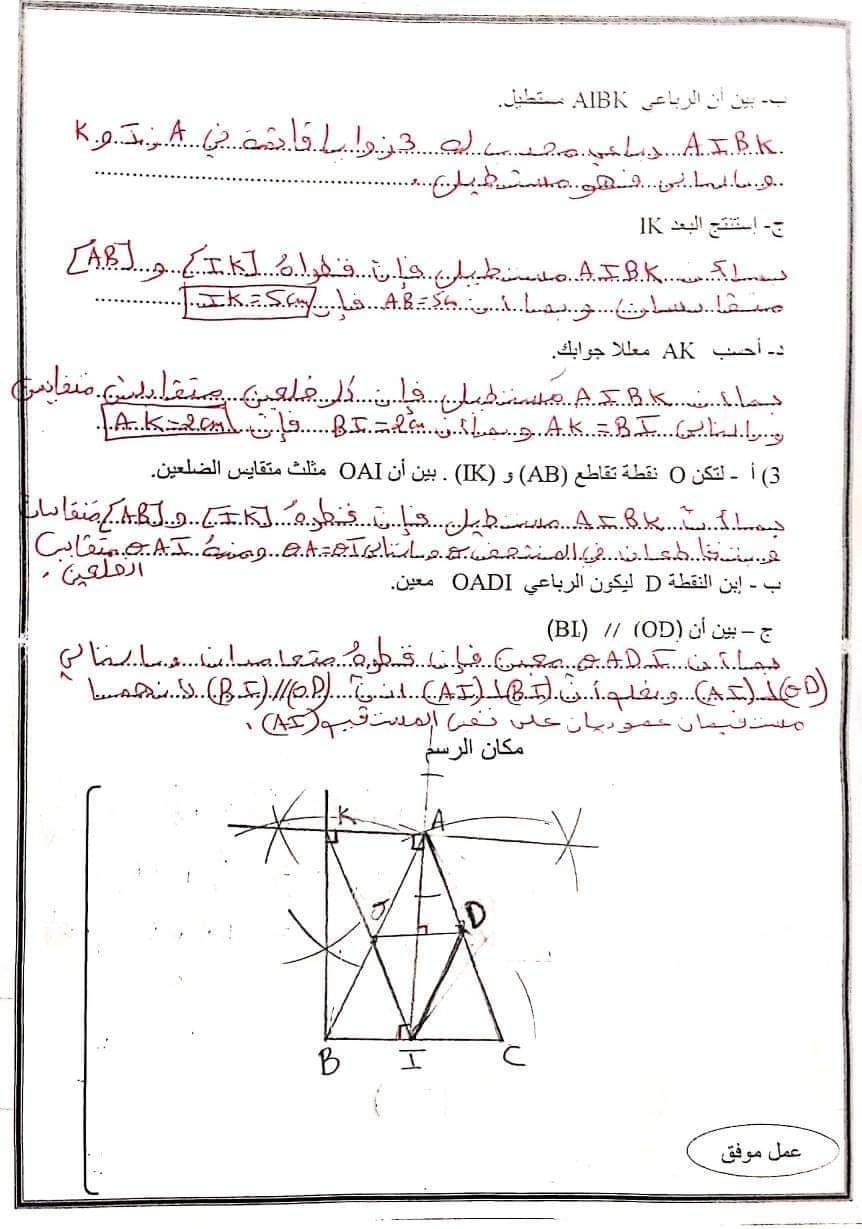 ب- بين أن الرباعي AIBK مستطيل.
AIBK رباعي محدب له 3 زوايا قائمة في A و I و K
وبالتالي فهو مستطيل.
ج- إستنتج البعد IK
بما أن AIBK مستطيل فإن قطراه [IK] و [AB]
متقايسان وبما أن AB=5cm فإن IK=5cm
د- أحسب AK معللا جوابك.
بما أن AIBK مستطيل فإن كل ضلعين متقابلين متقايسين
وبالتالي AK=BI وبما أن BI=2cm فإن AK=2cm
3) أ - لتكن O نقطة تقاطع (AB) و (IK) . بين أن OAI مثلث متقايس الضلعين.
بما أن AIBK مستطيل فإن قطراه [IK] و [AB] متقايسان
ويتقاطعان في المنتصف O وبالتالي OA=OI ومنه OAI متقايس
الضلعين.
ب - إبن النقطة D ليكون الرباعي OADI معين.
ج – بين أن (OD) // (BI)
بما أن OADI معين فإن قطراه متعامدان وبالتالي
(OD)⊥(AI) ونعلم أن (BI)⊥(AI) إذن (OD)//(BI) لأنهما
مستقيمان عموديان على نفس المستقيم (AI).
مكان الرسم
K A
O D
B I C
عمل موفق